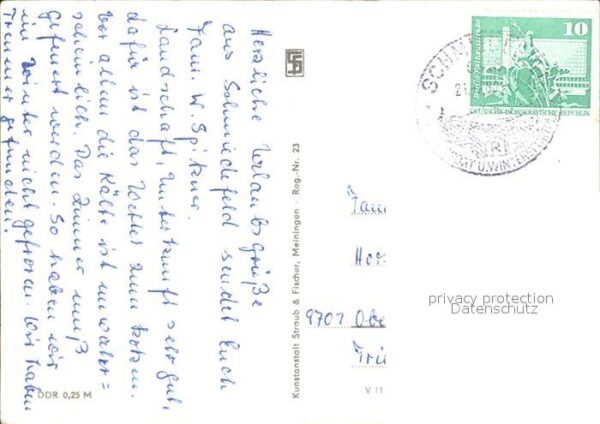 Herzliche Urlaubsgrüße
aus Schmiedefeld sendet Euch
Fam. W. Spitzner.
Landschaft, Unterkunft sehr gut,
dafür ist das Wetter zum kotzen.
Vor allem die Kälte ist unwahr=
scheinlich. Das Zimmer muß
gefeuert werden. So haben wir
im Winter nicht gefroren. Wir haben
Trümmer gefunden.
DDR 0,25 M
Kunstanstalt Straub & Fischer, Meiningen · Reg.-Nr. 23
V 11
10
DEUTSCHE DEMOKRATISCHE REPUBLIK
SCHM
(R)
U.WIN
Fam
Her
9701 Obe
privacy protection
Datenschutz